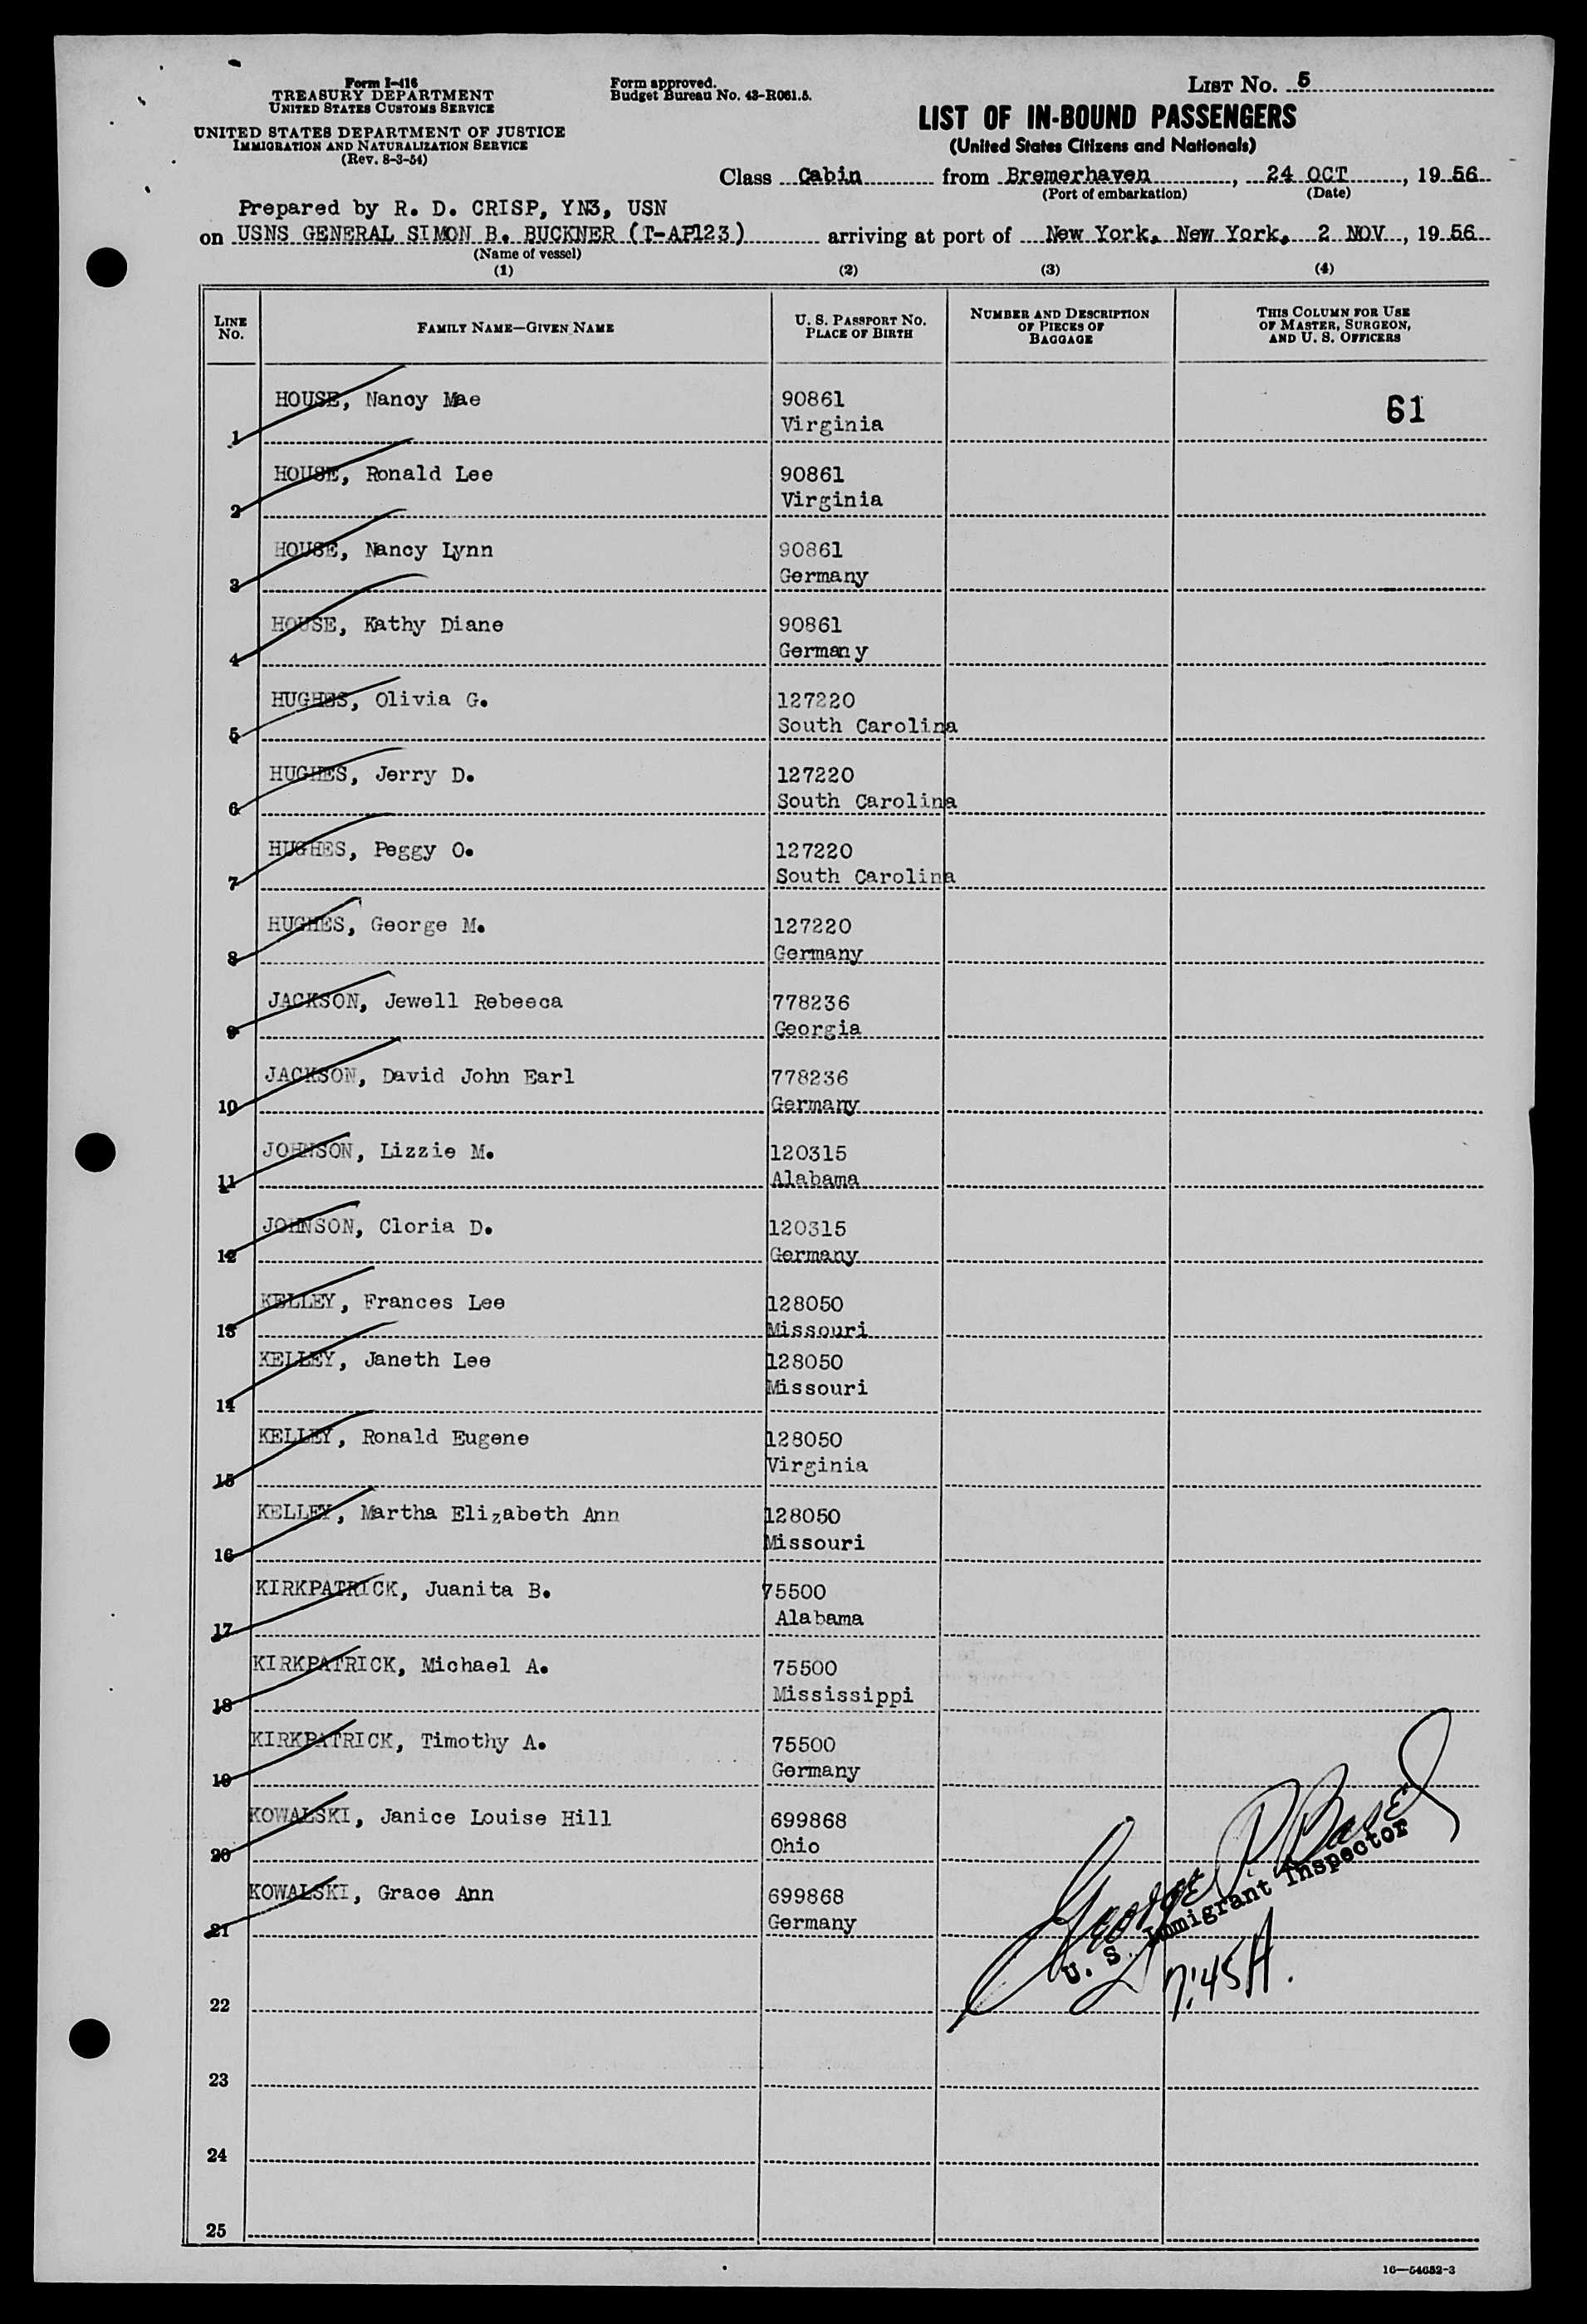 Form I-416
TREASURY DEPARTMENT
UNITED STATES CUSTOMS SERVICE
UNITED STATES DEPARTMENT OF JUSTICE
IMMIGRATION AND NATURALIZATION SERVICE
(Rev. 8-3-54)
Form approved.
Budget Bureau No. 43-R061.5.
LIST NO. 5
LIST OF IN-BOUND PASSENGERS
(United States Citizens and Nationals)
Class Cabin from Bremerhaven, 24 OCT, 1956
(Port of embarkation) (Date)
Prepared by R. D. CRISP, YN3, USN
on USNS GENERAL SIMON B. BUCKNER (T-AP123) arriving at port of New York, New York, 2 NOV, 1956
(Name of vessel)
(1) (2) (3) (4)
LINE NO. FAMILY NAME—GIVEN NAME U. S. PASSPORT NO. PLACE OF BIRTH NUMBER AND DESCRIPTION OF PIECES OF BAGGAGE THIS COLUMN FOR USE OF MASTER, SURGEON, AND U. S. OFFICERS
1 HOUSE, Nancy Mae 90861 61
Virginia
2 HOUSE, Ronald Lee 90861
Virginia
3 HOUSE, Nancy Lynn 90861
Germany
4 HOUSE, Kathy Diane 90861
Germany
5 HUGHES, Olivia G. 127220
South Carolina
6 HUGHES, Jerry D. 127220
South Carolina
7 HUGHES, Peggy O. 127220
South Carolina
8 HUGHES, George M. 127220
Germany
9 JACKSON, Jewell Rebecca 778236
Georgia
10 JACKSON, David John Earl 778236
Germany
11 JOHNSON, Lizzie M. 120315
Alabama
12 JOHNSON, Cloria D. 120315
Germany
13 KELLEY, Frances Lee 128050
Missouri
14 KELLEY, Janeth Lee 128050
Missouri
15 KELLEY, Ronald Eugene 128050
Virginia
16 KELLEY, Martha Elizabeth Ann 128050
Missouri
17 KIRKPATRICK, Juanita B. 75500
Alabama
18 KIRKPATRICK, Michael A. 75500
Mississippi
19 KIRKPATRICK, Timothy A. 75500
Germany
20 KOWALSKI, Janice Louise Hill 699868
Ohio
21 KOWALSKI, Grace Ann 699868
Germany
George P.
U. S. Immigrant Inspector
7:45A.
22
23
24
25
16—54652-3